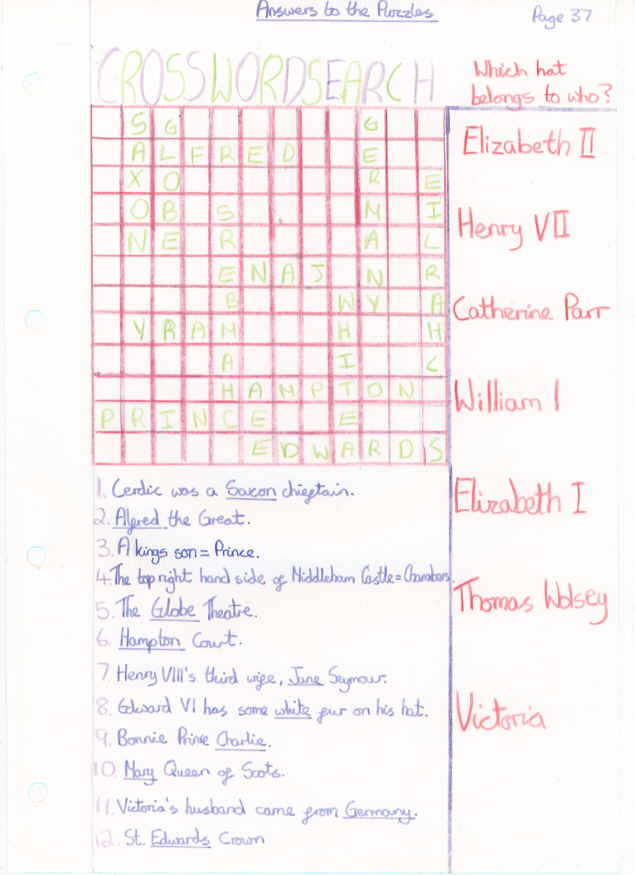 Answers to the Puzzles
Page 37
CROSSWORDSEARCH
S G G
A L F R E D E
X O R E
O B S M I
N E R A L
E N A J N R
B W Y A
Y R A M H H
A I C
H A M P T O N
P R I N C E E
E D W A R D S
1. Cerdic was a Saxon chieftain.
2. Alfred the Great.
3. A kings son = Prince.
4. The top right hand side of Middleham Castle = Chambers.
5. The Globe Theatre.
6. Hampton Court.
7. Henry VIII's third wife, Jane Seymour.
8. Edward VI has some white fur on his hat.
9. Bonnie Prince Charlie.
10. Mary Queen of Scots.
11. Victoria's husband came from Germany.
12. St. Edwards Crown
Which hat
belongs to who?
Elizabeth II
Henry VII
Catherine Parr
William I
Elizabeth I
Thomas Wolsey
Victoria